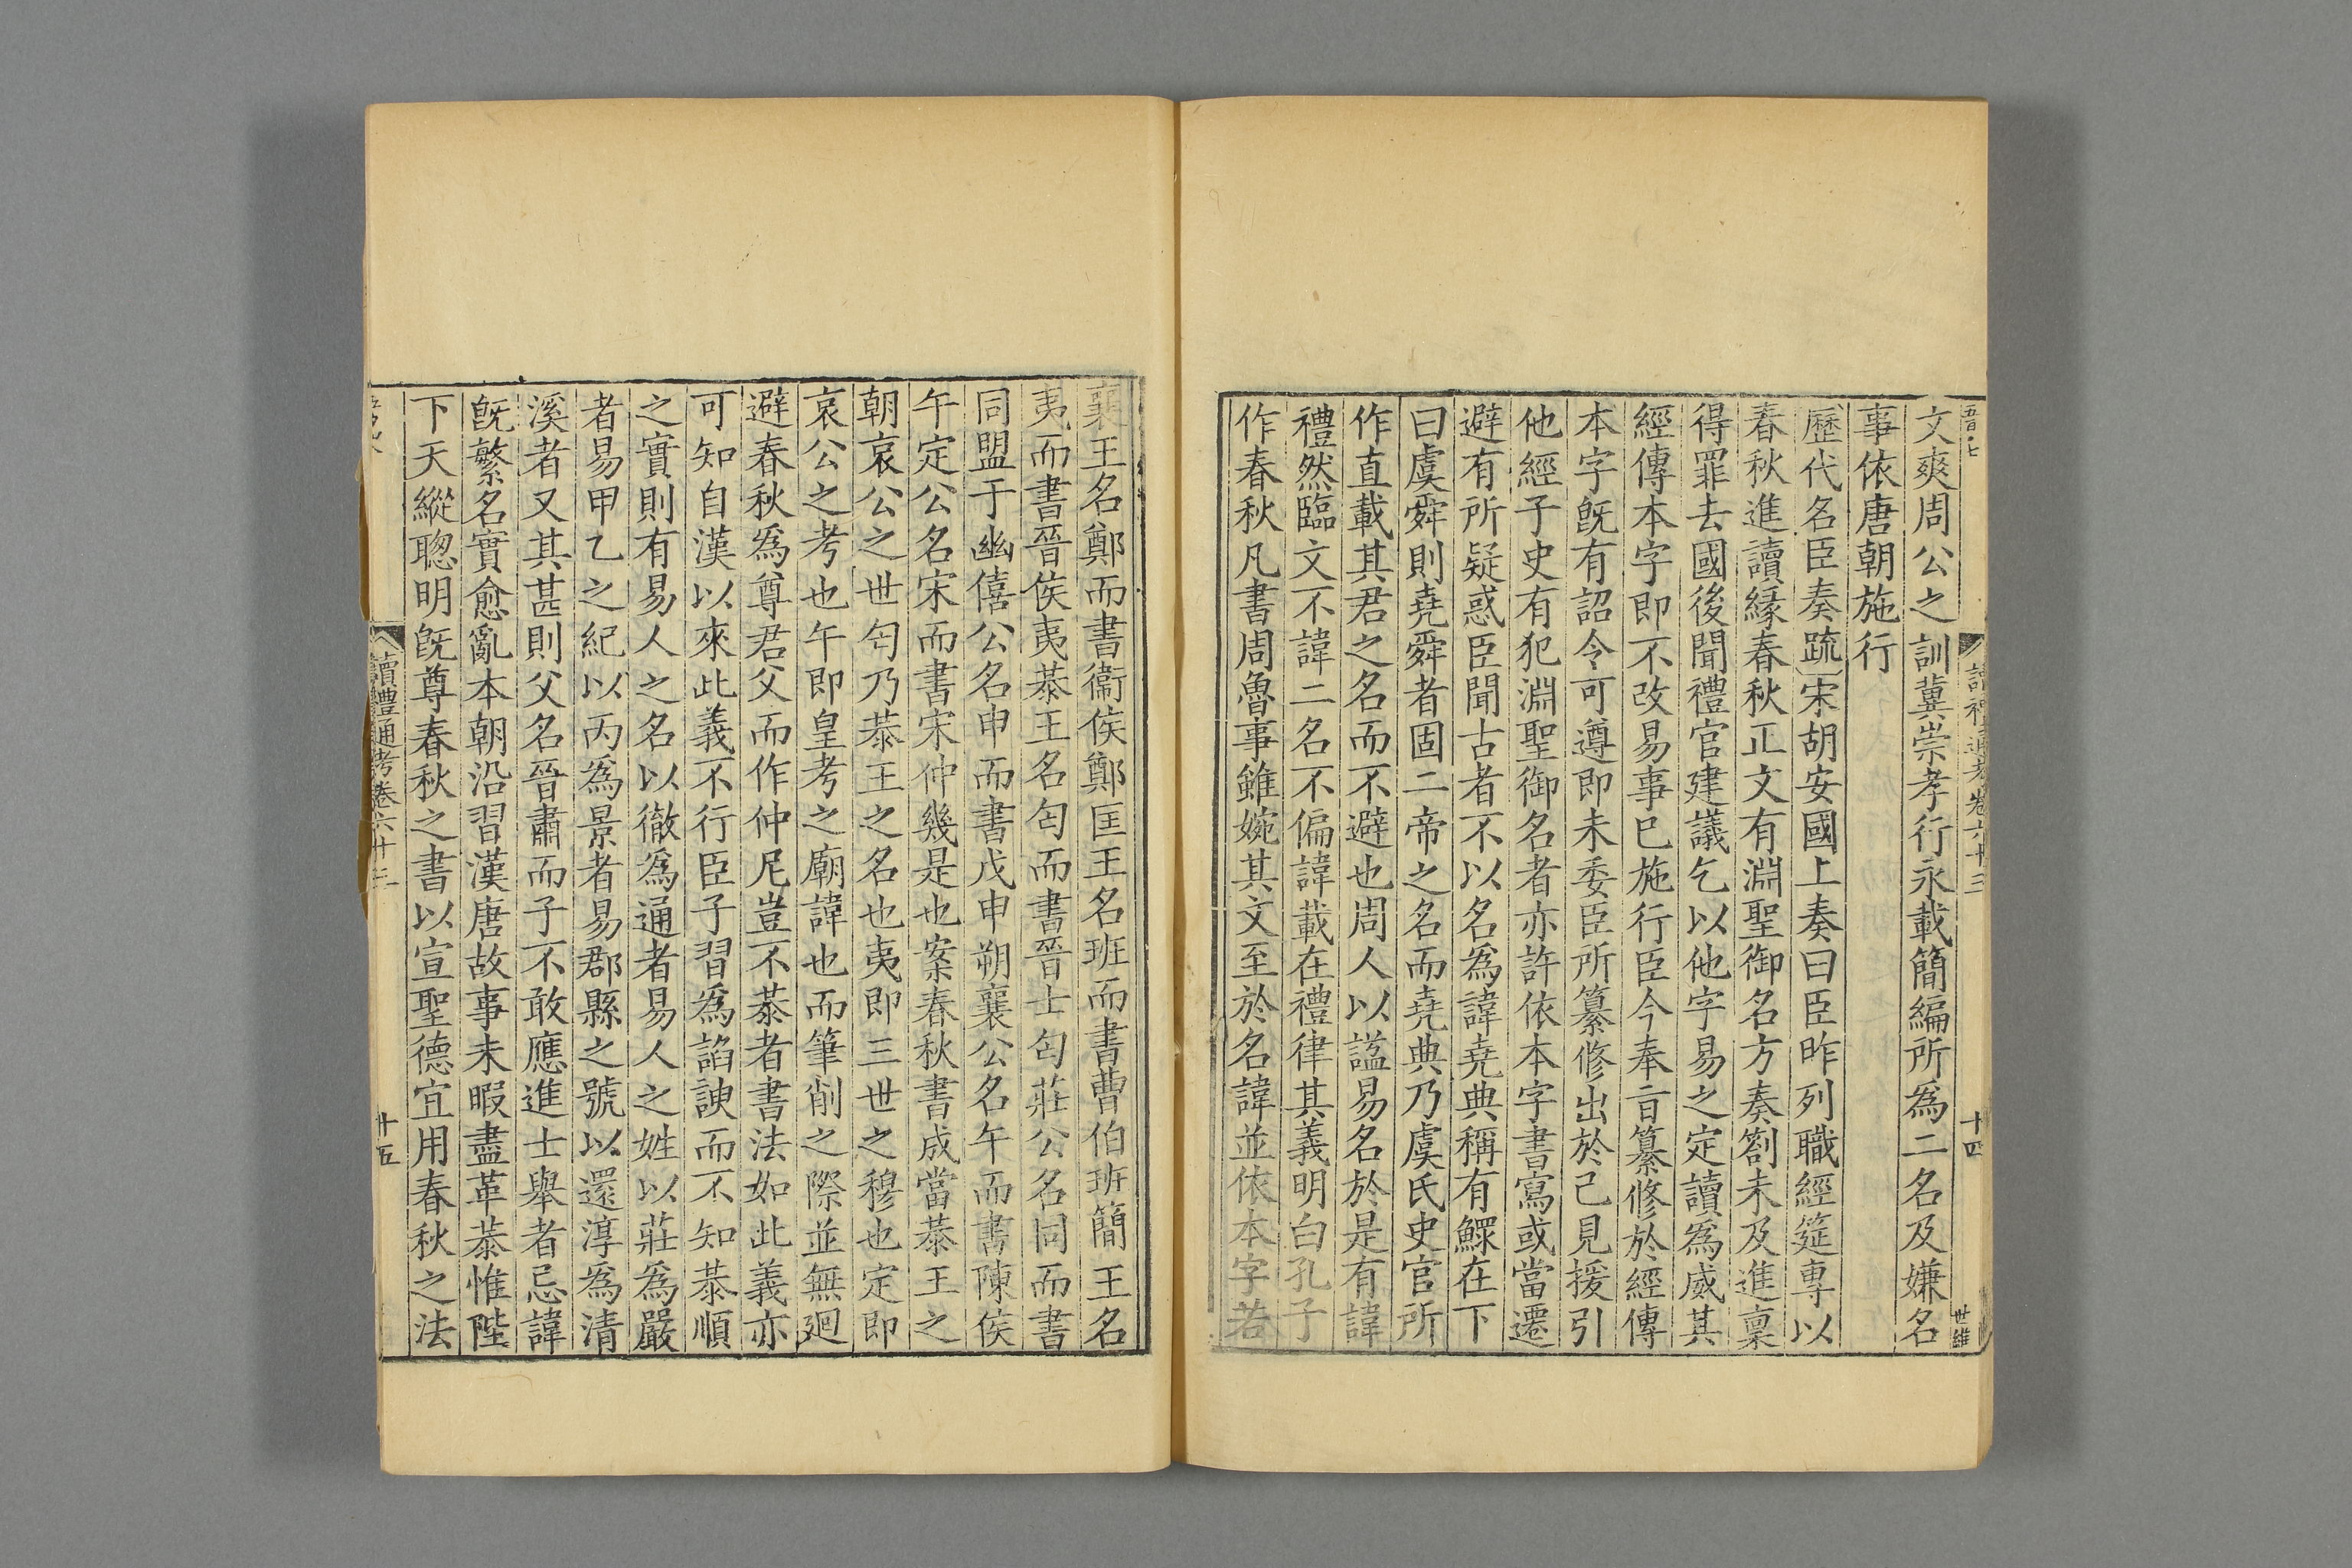 文爽周公之訓冀崇孝行永載簡編所為二名及嫌名
事依唐朝施行
歷代名臣奏疏宋胡安國上奏曰臣昨列職經筵專以
春秋進讀緣春秋正文有淵聖御名方奏劄未及進稟
得罪去國後聞禮官建議乞以他字易之定讀爲威其
經傳本字即不改易事已施行臣今奉旨纂修於經傳
本字旣有詔令可遵即未委臣所纂修出於己見援引
他經子史有犯淵聖御名者亦許依本字書寫或當遷
避有所疑惑臣聞古者不以名爲諱堯典稱有鰥在下
曰虞舜則堯舜者固二帝之名而堯典乃虞氏史官所
作直載其君之名而不避也周人以諡易名於是有諱
禮然臨文不諱二名不偏諱載在禮律其義明白孔子
作春秋凡書周魯事雖婉其文至於名諱並依本字若
讀禮通考卷六十三
十四
世維
襄王名鄭而書衞侯鄭匡王名班而書曹伯班簡王名
夷而書晉侯夷恭王名匄而書晉士匄莊公名同而書
同盟于幽僖公名申而書戊申朔襄公名午而書陳侯
午定公名宋而書宋仲幾是也案春秋書成當恭王之
朝哀公之世匄乃恭王之名也夷即三世之穆也定即
哀公之考也午即皇考之廟諱也而筆削之際並無廻
避春秋爲尊君父而作仲尼豈不恭者書法如此義亦
可知自漢以來此義不行臣子習爲諂諛而不知恭順
之實則有易人之名以徹爲通者易人之姓以莊爲嚴
者易甲乙之紀以丙爲景者易郡縣之號以還淳爲清
溪者又其甚則父名晉肅而子不敢應進士舉者忌諱
旣繁名實愈亂本朝沿習漢唐故事未暇盡革恭惟陛
下天縱聰明旣尊春秋之書以宣聖德宜用春秋之法
讀禮通考卷六十三
十五